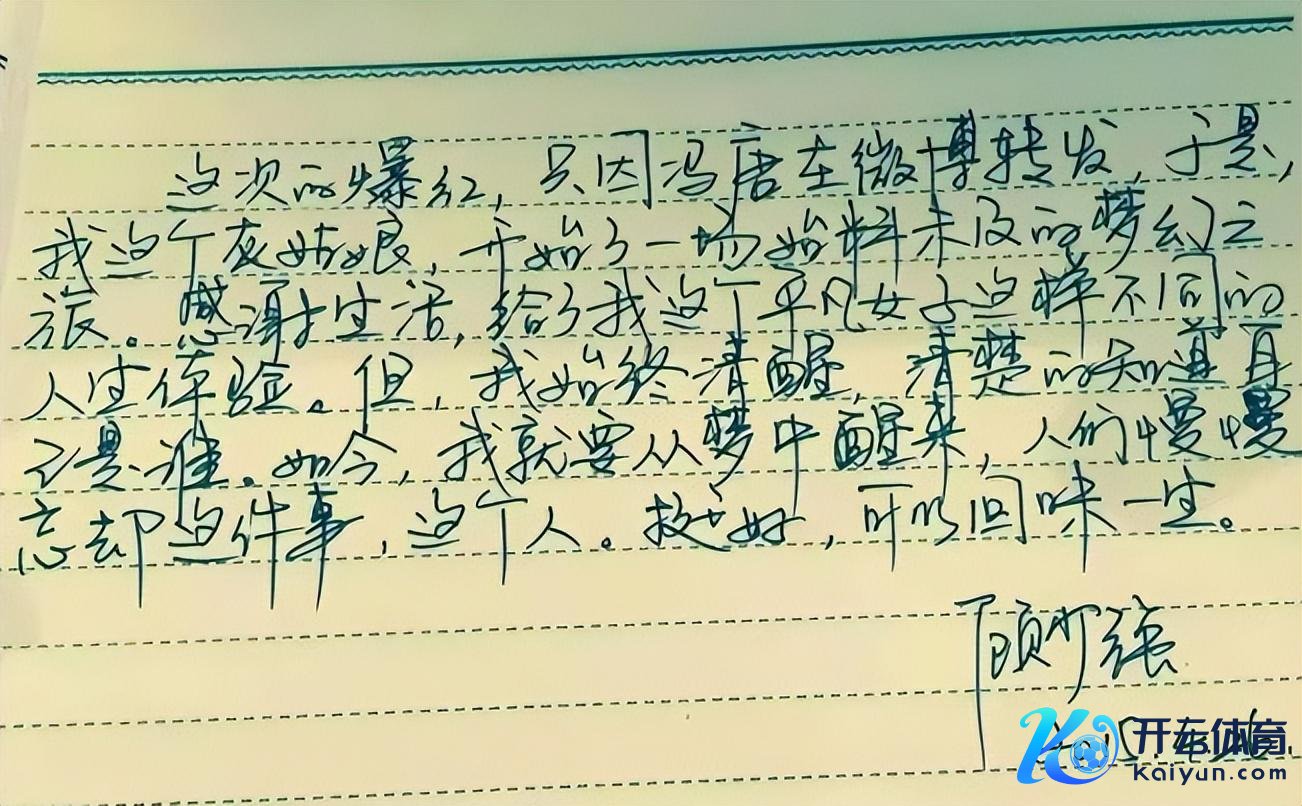 这次的爆红，只因冯唐在微博转发，于是，
我这个灰姑娘，开始了一场始料未及的梦幻之
旅。感谢生活，给了我这个平凡女子这样不同的
人生体验。但，我始终清醒，清楚的知道自
己是谁。如今，我就要从梦中醒来，人们慢慢
忘却这件事，这个人。挺好，可以回味一生。
顾少强
开车体育
Kaiyun.com